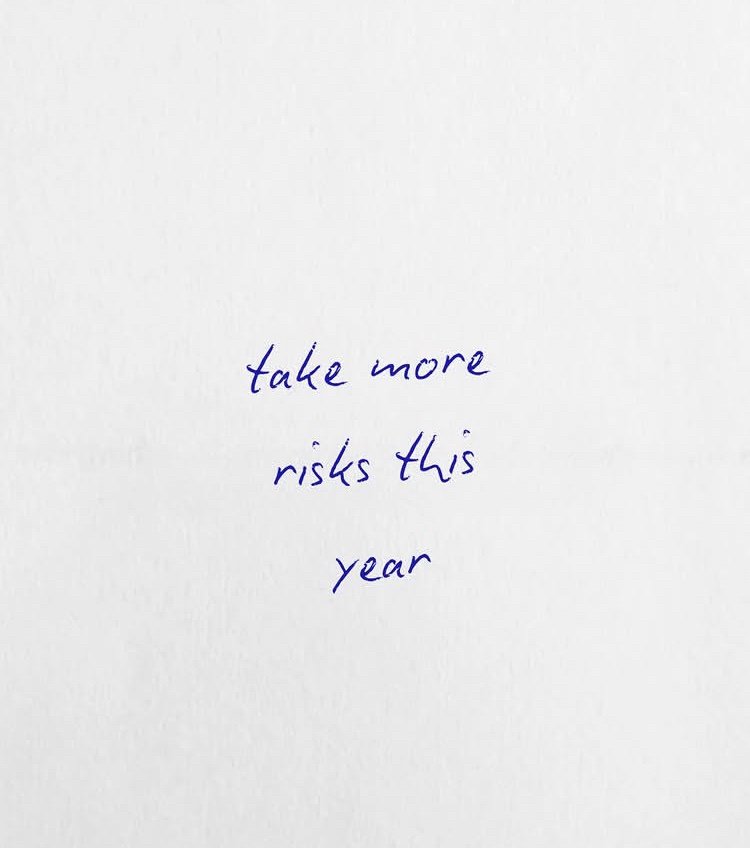 take more
risks this
year